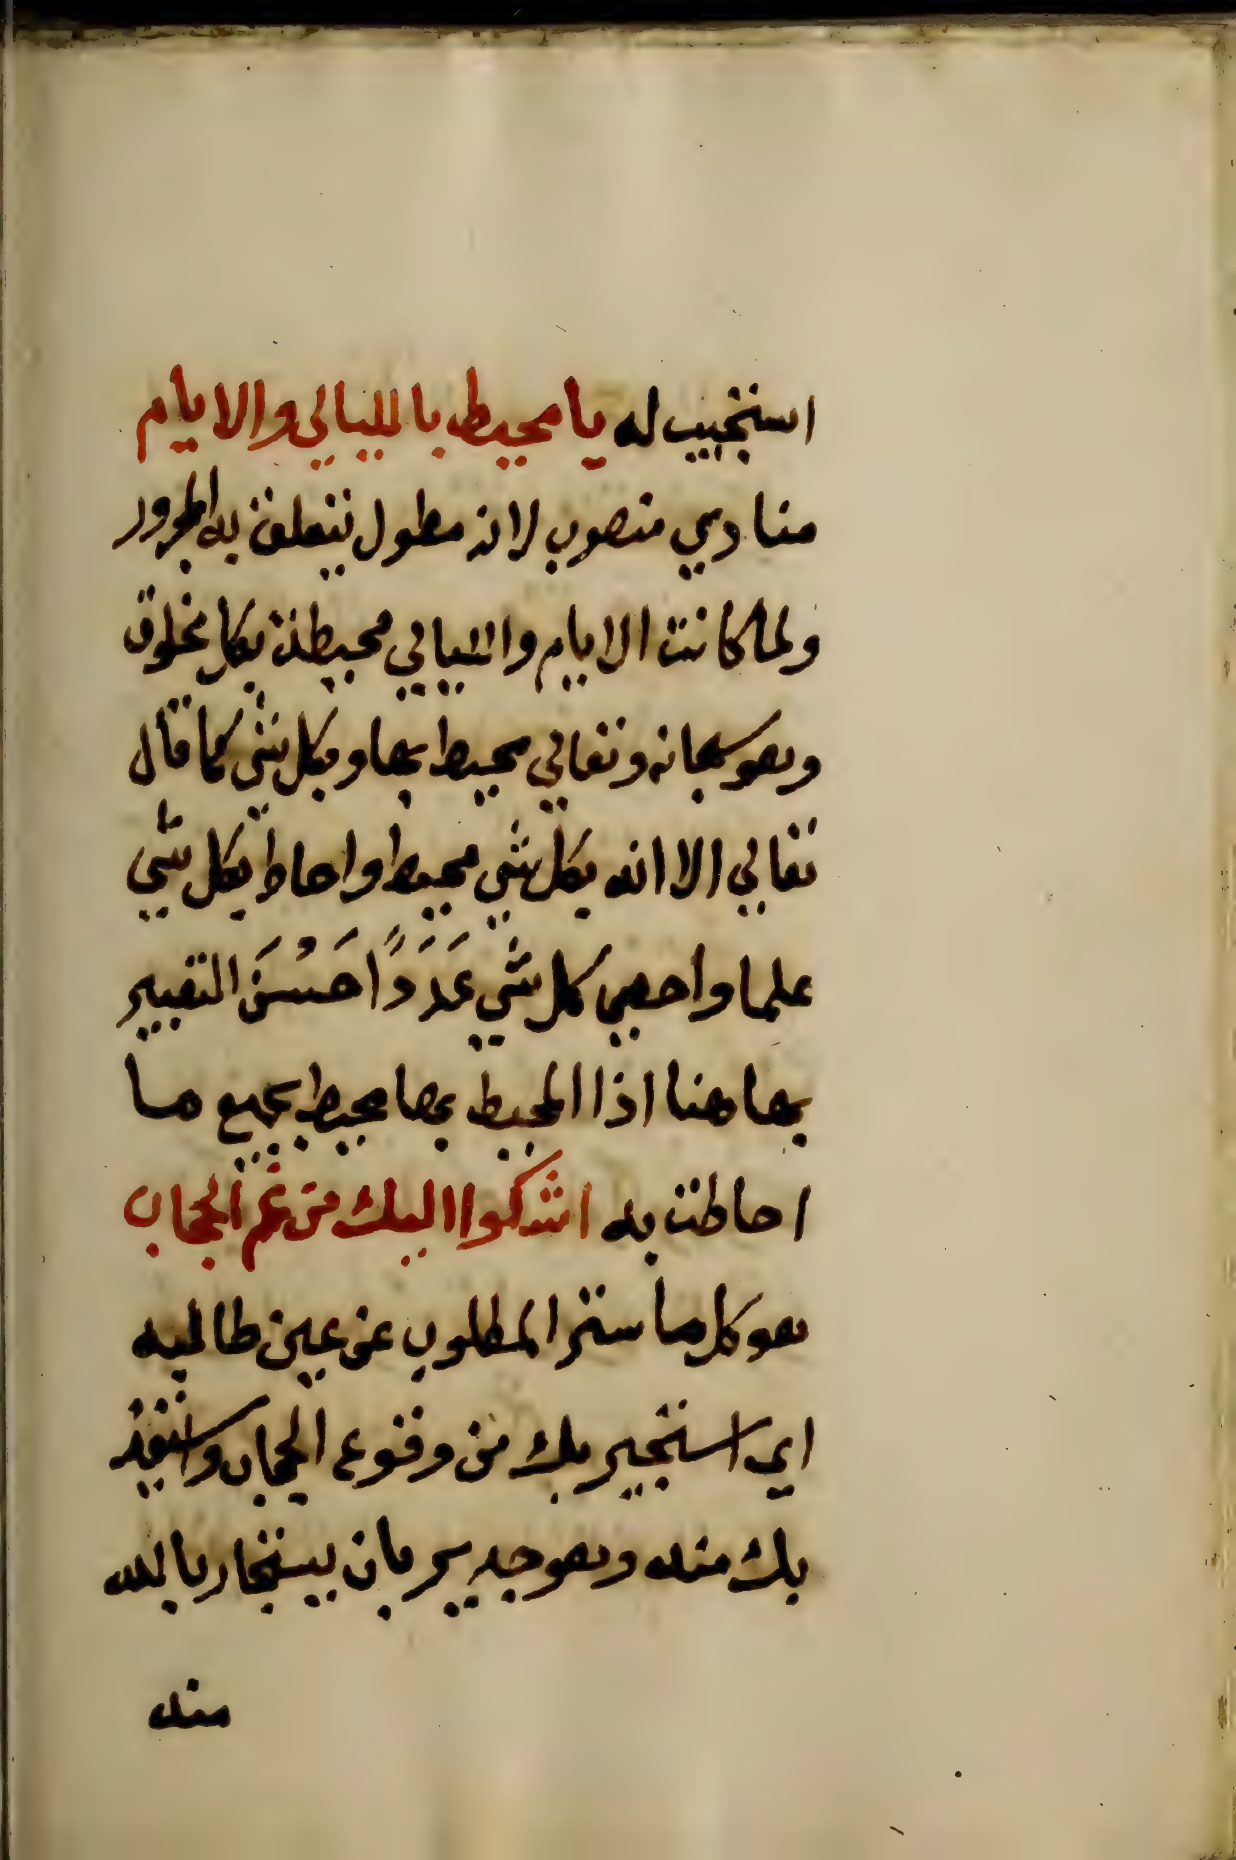 استجيب له يا محيط بالليالي والايام
منادي منصوب لانه مطول تتعلق به المجرور
ولما كانت الايام والليالي محيطة بكل مخلوق
وهو سبحانه وتعالي محيط بها وبكل شي كما قال
تعالي الا انه بكل شي محيط واحاط بكل شي
علما واحصي كل شي عَدَدًا حَسُنَ التعبير
بها هنا اذا المحيط بها محيط بجميع ما
احاطت به اشكوا اليك من غم الحجاب
هو كل ما ستر المطلوب عن عين طالبه
اي استجير بك من وقوع الحجاب واستعيذ
بك منه وهو جدير بان يستجار بالله
منه